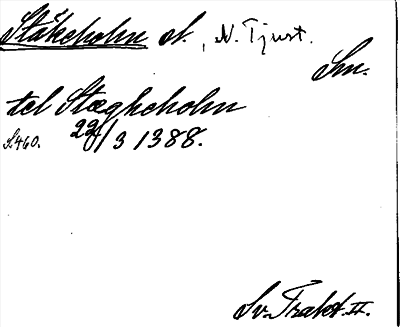 Stäkeholm sl., N. Tjust.
Sm.
tel Stægheholm
S.460. 22/3 1388.
Sv. Trakt. II.